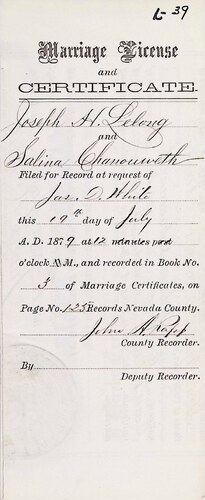 L-39
Marriage License
and
CERTIFICATE.
Joseph H. Lelong
and
Salina Chanouweth
Filed for Record at request of
Jas. D. White
this 19th day of July
A. D. 1879 at 12 minutes past
o'clock M., and recorded in Book No.
5 of Marriage Certificates, on
Page No. 125 Records Nevada County.
John A. Rapp
County Recorder.
By
Deputy Recorder.